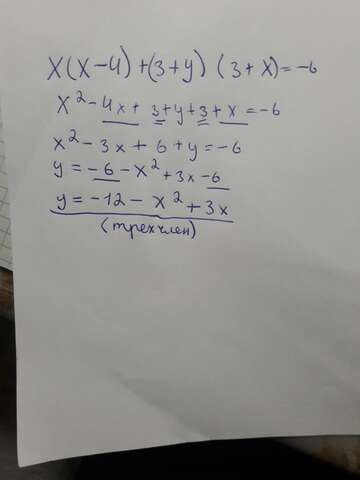 X(X-4)+(3+y) (3+x)=-6
x²-4x+3+y+3+x=-6
x²-3x+6+y=-6
y=-6-x²+3x-6
y=-12-x²+3x
(трехчлен)